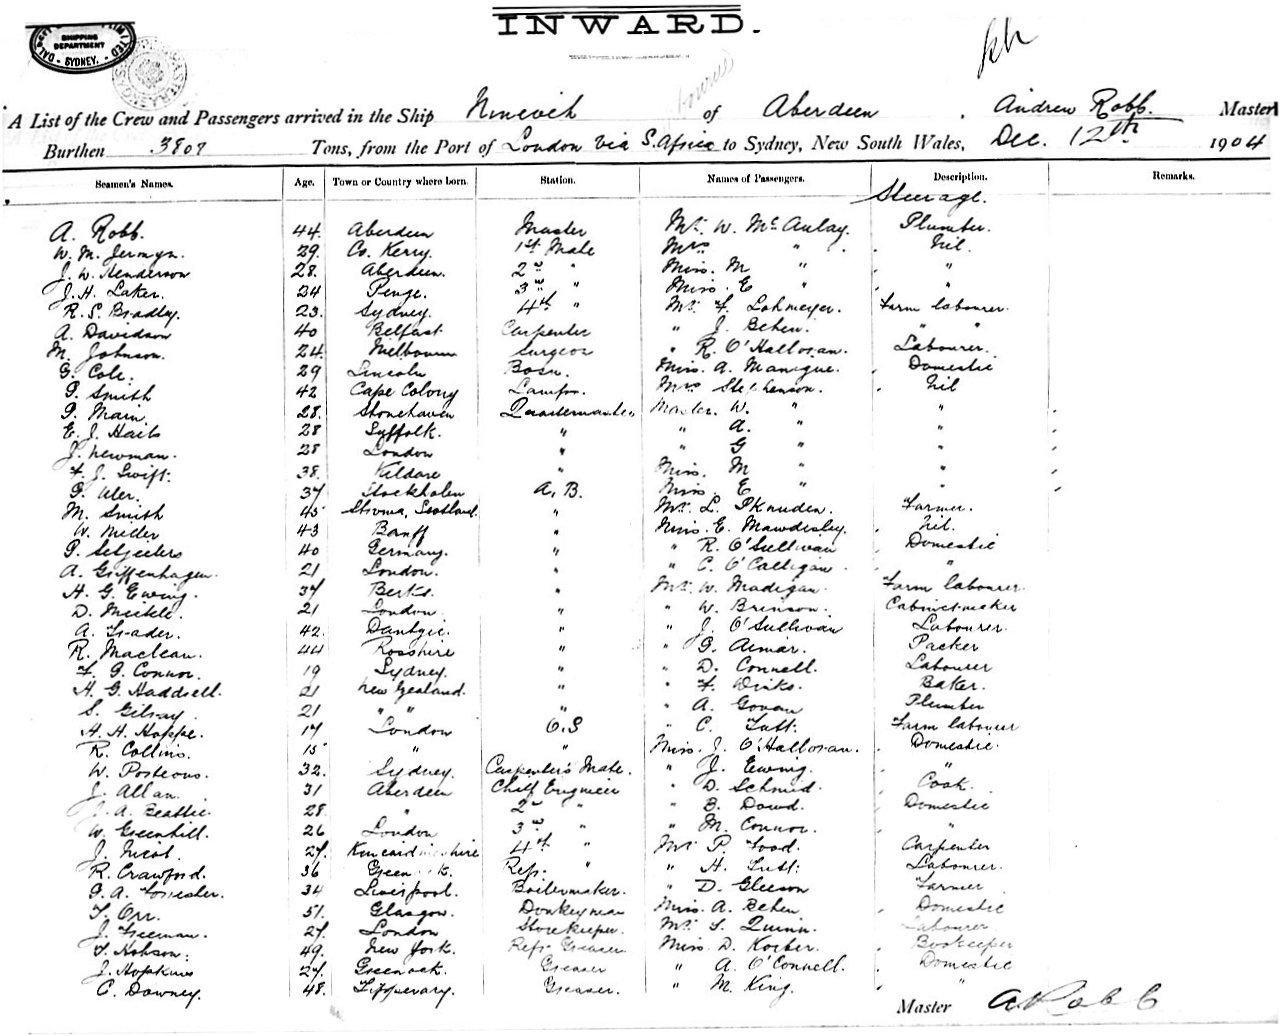 INWARD.
SHIPPING DEPARTMENT
SYDNEY.
A List of the Crew and Passengers arrived in the Ship Nineveh of Aberdeen, Andrew Robb. Master
Burthen 3808 Tons, from the Port of London via S. Africa to Sydney, New South Wales, Dec. 12th 1904
Seamen's Names. Age. Town or Country where born. Station. Names of Passengers. Description. Remarks.
Steerage.
A. Robb. 44. Aberdeen Master Mr. W. McAulay. Plumber.
W. M. Jermyn. 29. Co. Kerry. 1st Mate Mrs " Nil.
J. W. Henderson 28. Aberdeen. 2nd " Miss. M " "
J. H. Laker. 34 Penge. 3rd " Miss. E " "
R. S. Bradley. 23. Sydney. 4th " Mr. F. Lohmeyer. Farm labourer.
A. Davidson 40 Belfast. Carpenter " J. Behen. " "
M. Johnson. 24. Melbourne Surgeon " R. O'Halloran. Labourer.
G. Cole. 29 Lincoln Bosn. Miss. A. Manigue. Domestic
P. Smith 42 Cape Colony Lamps. Mrs Stephenson. Nil
P. Main 28. Stonehaven Quartermaster Master. W. " "
E. J. Hails 28 Suffolk. " " A. " "
J. Newman. 28 London " " G " "
F. J. Swift. 38. Kildare " Miss. M " "
37 Stockholm A. B. Miss. E " "
M. Smith 45 Stroma, Scotland. " Mr. L. Farmer.
W. Miller 43 Banff " Miss. E. Mawdesley. Nil.
40 Germany. " " R. O'Sullivan Domestic
A. Griffenhagen. 21 London. " " C. O'Calligan "
H. G. Ewing. 34 Berks. " Mr. W. Madigan. Farm labourer.
D. Meikle. 21 London. " " W. Brinson. Cabinet-maker
A. 42. Dantzic. " " J. O'Sullivan Labourer.
R. Maclean. 44 Rosshire " " G. Aimar. Packer
F. G. Connor. 19 Sydney. " " D. Connell. Labourer
H. G. Haddrell. 21 New Zealand. " " F. Winks. Baker.
S. Gilray. 21 " " " " A. Govan Plumber
H. H. Hoppe. 17 London O. S " C. Tutt. Farm labourer
R. Collins. 15 " " Miss. J. O'Halloran. Domestic.
W. Posteous. 32. Sydney. Carpenter's Mate. " J. Ewing. "
J. Allan. 31 Aberdeen Chief Engineer " D. Schmid. Cook.
J. A. Beattie. 28. " 2nd " " B. Dowd. Domestic
W. Greenhill. 26 London 3rd " " M. Connor. "
J. Nicol. 27. Kincardineshire 4th " Mr P. Food. Carpenter
R. Crawford. 36 Refr. " H. Tutt. Labourer.
G. A. Forrester. 34 Liverpool. Boilermaker. " D. Gleeson Farmer
T. Orr. 51. Glasgow. Donkeyman Miss. A. Behen. Domestic
J. Freeman. 27. London Storekeeper. Mr. T. Quinn. Labourer
T. Hobson. 49. New York. Refr. Greaser Miss. D. Korber. Bookeeper
J. Hopkins 27. Greenock. Greaser " A. O'Connell. Domestic
C. Downey. 48. Tipperary. Greaser. " M. King. "
Master A Robb